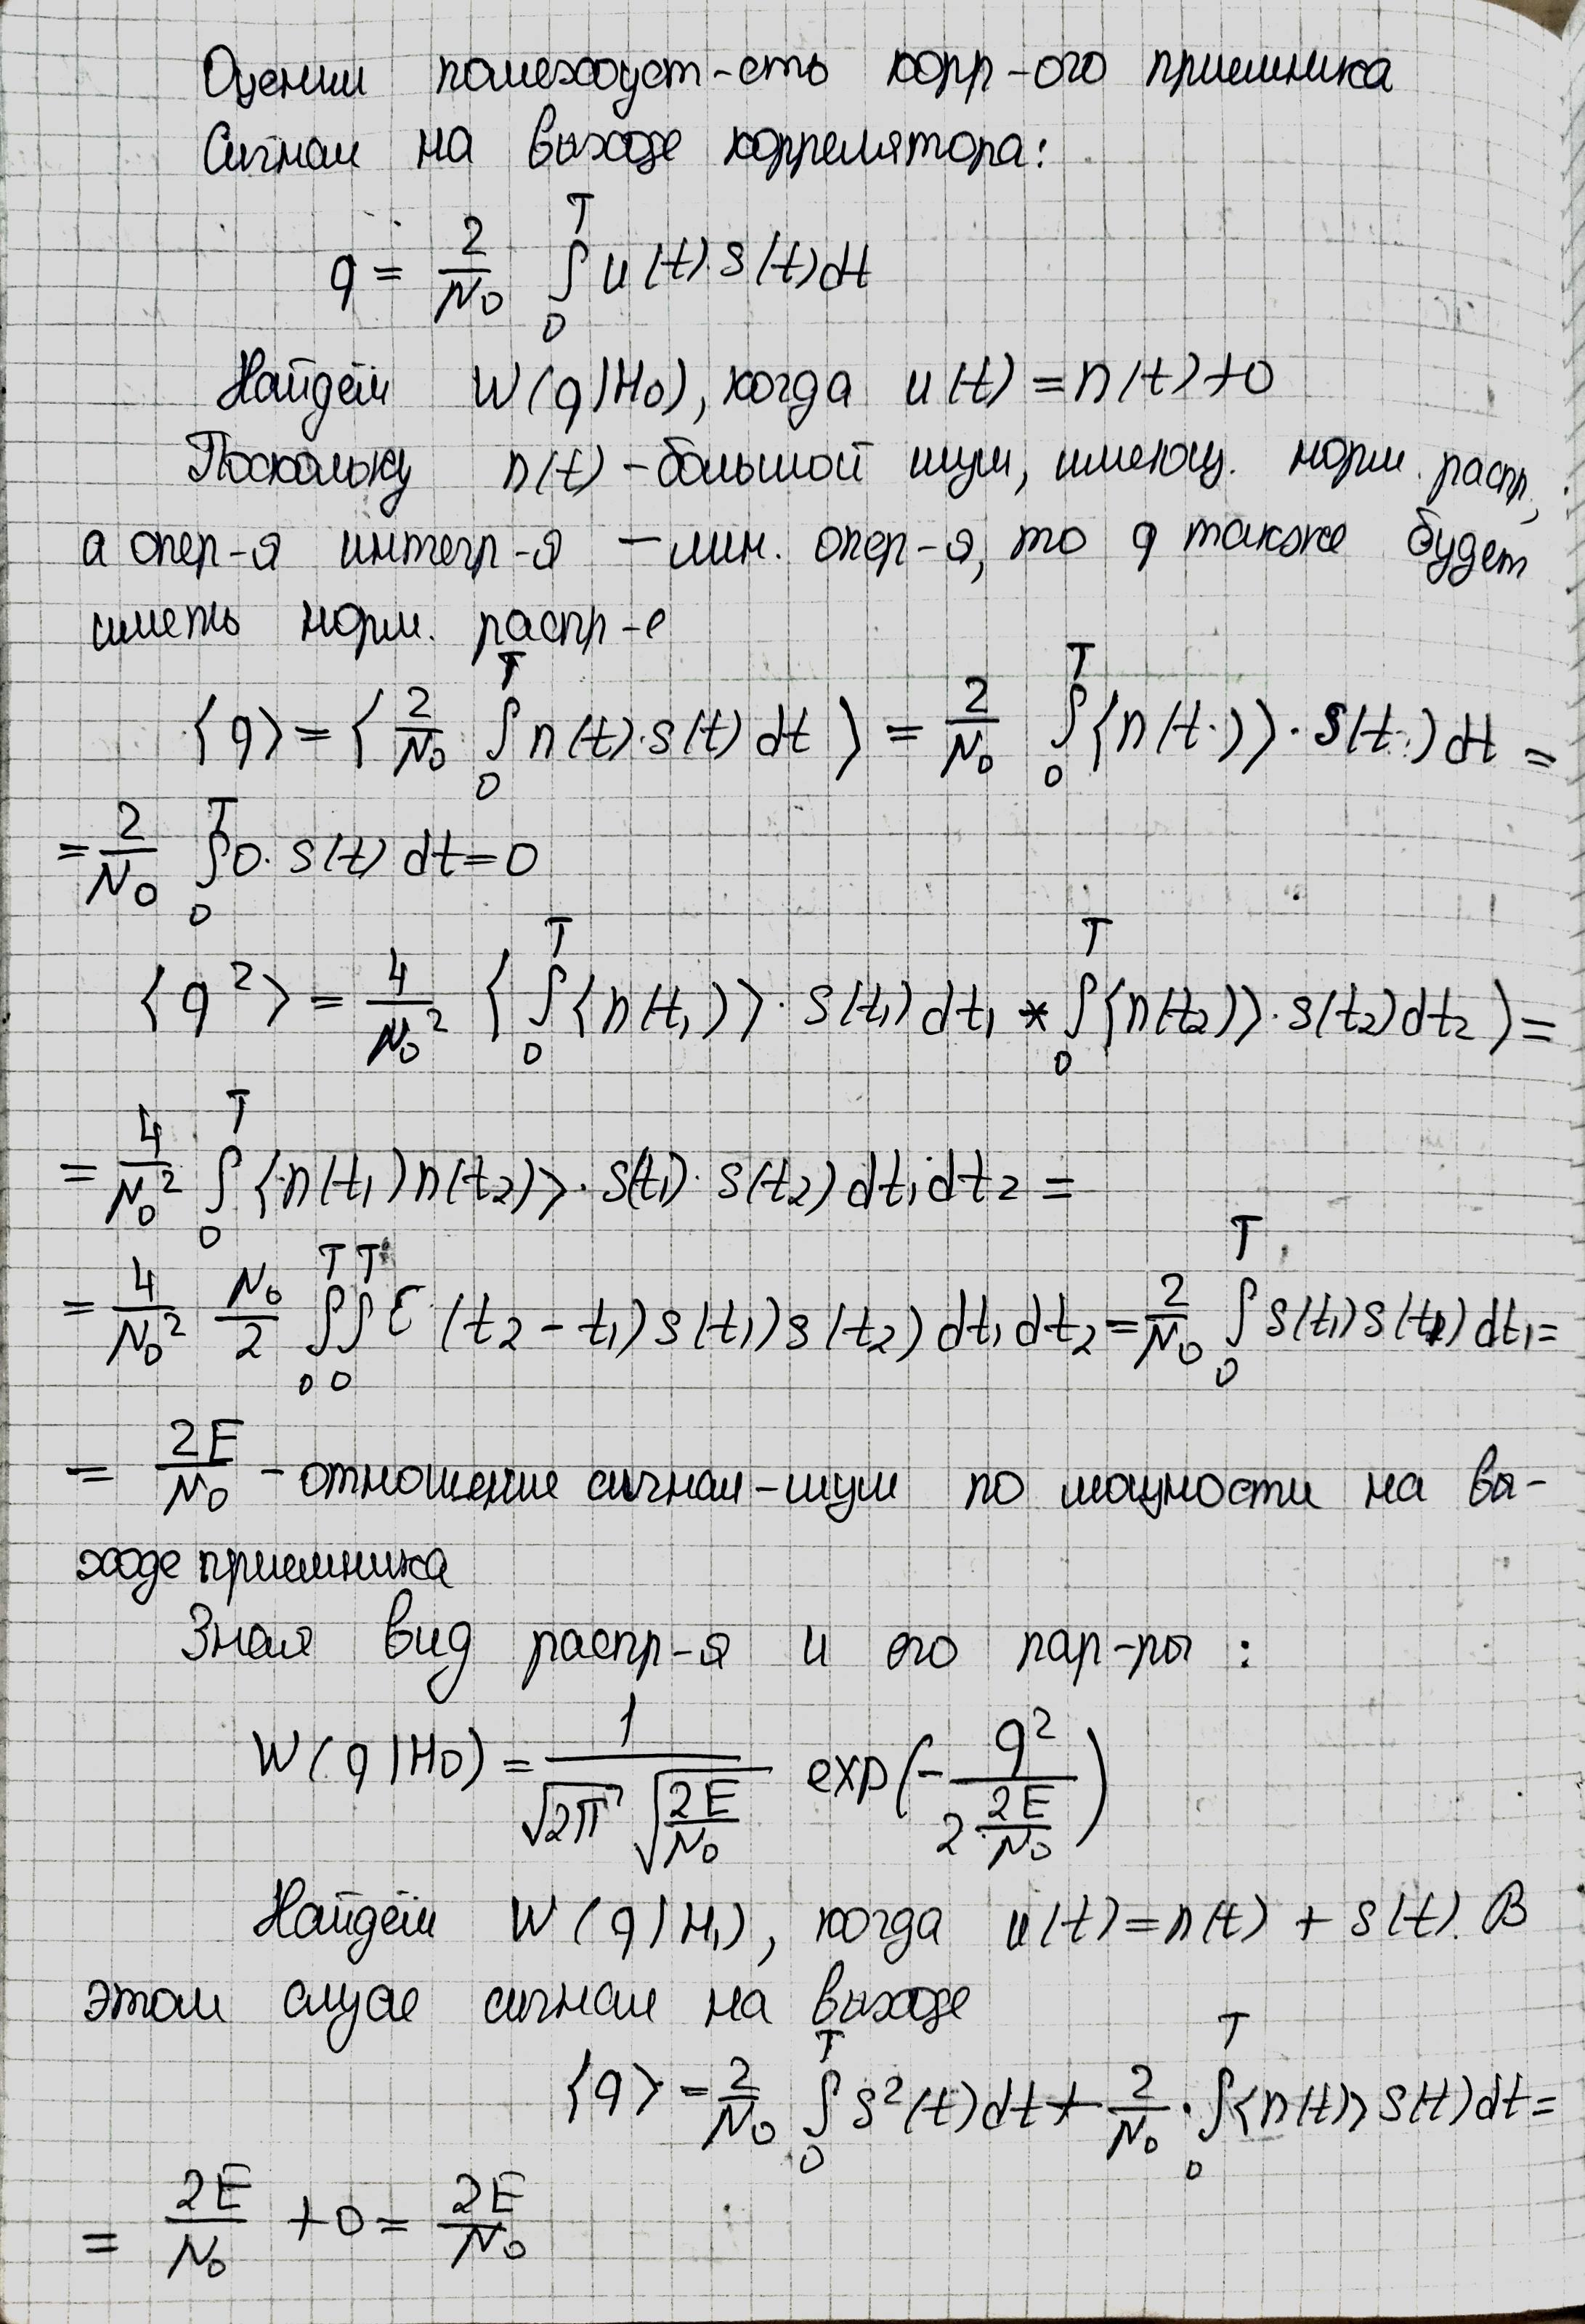 Оценим помехоуст-сть корр-ого приемника
Сигнал на выходе коррелятора:
q = \frac{2}{N_0} \int_0^T u(t) \cdot s(t) dt
Найдём W(q|H_0), когда u(t) = n(t) + 0
Поскольку n(t) - большой шум, имеющ. норм. распр,
а опер-я интегр-я - лин. опер-я, то q также будет
иметь норм. распр-е
\langle q \rangle = \langle \frac{2}{N_0} \int_0^T n(t) \cdot s(t) dt \rangle = \frac{2}{N_0} \int_0^T \langle n(t) \rangle \cdot s(t) dt =
= \frac{2}{N_0} \int_0^T 0 \cdot s(t) dt = 0
\langle q^2 \rangle = \frac{4}{N_0^2} \langle \int_0^T \langle n(t_1) \rangle \cdot s(t_1) dt_1 * \int_0^T \langle n(t_2) \rangle \cdot s(t_2) dt_2 \rangle =
= \frac{4}{N_0^2} \int_0^T \langle n(t_1) n(t_2) \rangle \cdot s(t_1) \cdot s(t_2) dt_1 dt_2 =
= \frac{4}{N_0^2} \frac{N_0}{2} \int_0^T \int_0^T \mathcal{E} (t_2 - t_1) s(t_1) s(t_2) dt_1 dt_2 = \frac{2}{N_0} \int_0^T s(t_1) s(t_1) dt_1 =
= \frac{2E}{N_0} - отношение сигнал-шум по мощности на вы-
ходе приемника
Зная вид распр-я и его пар-ры :
W(q|H_0) = \frac{1}{\sqrt{2\pi} \sqrt{\frac{2E}{N_0}}} exp(-\frac{q^2}{2 \frac{2E}{N_0}})
Найдём W(q|H_1), когда u(t) = n(t) + s(t). В
этом случае сигнал на выходе
\langle q \rangle = \frac{2}{N_0} \int_0^T s^2(t) dt + \frac{2}{N_0} \cdot \int_0^T \langle n(t) \rangle s(t) dt =
= \frac{2E}{N_0} + 0 = \frac{2E}{N_0}